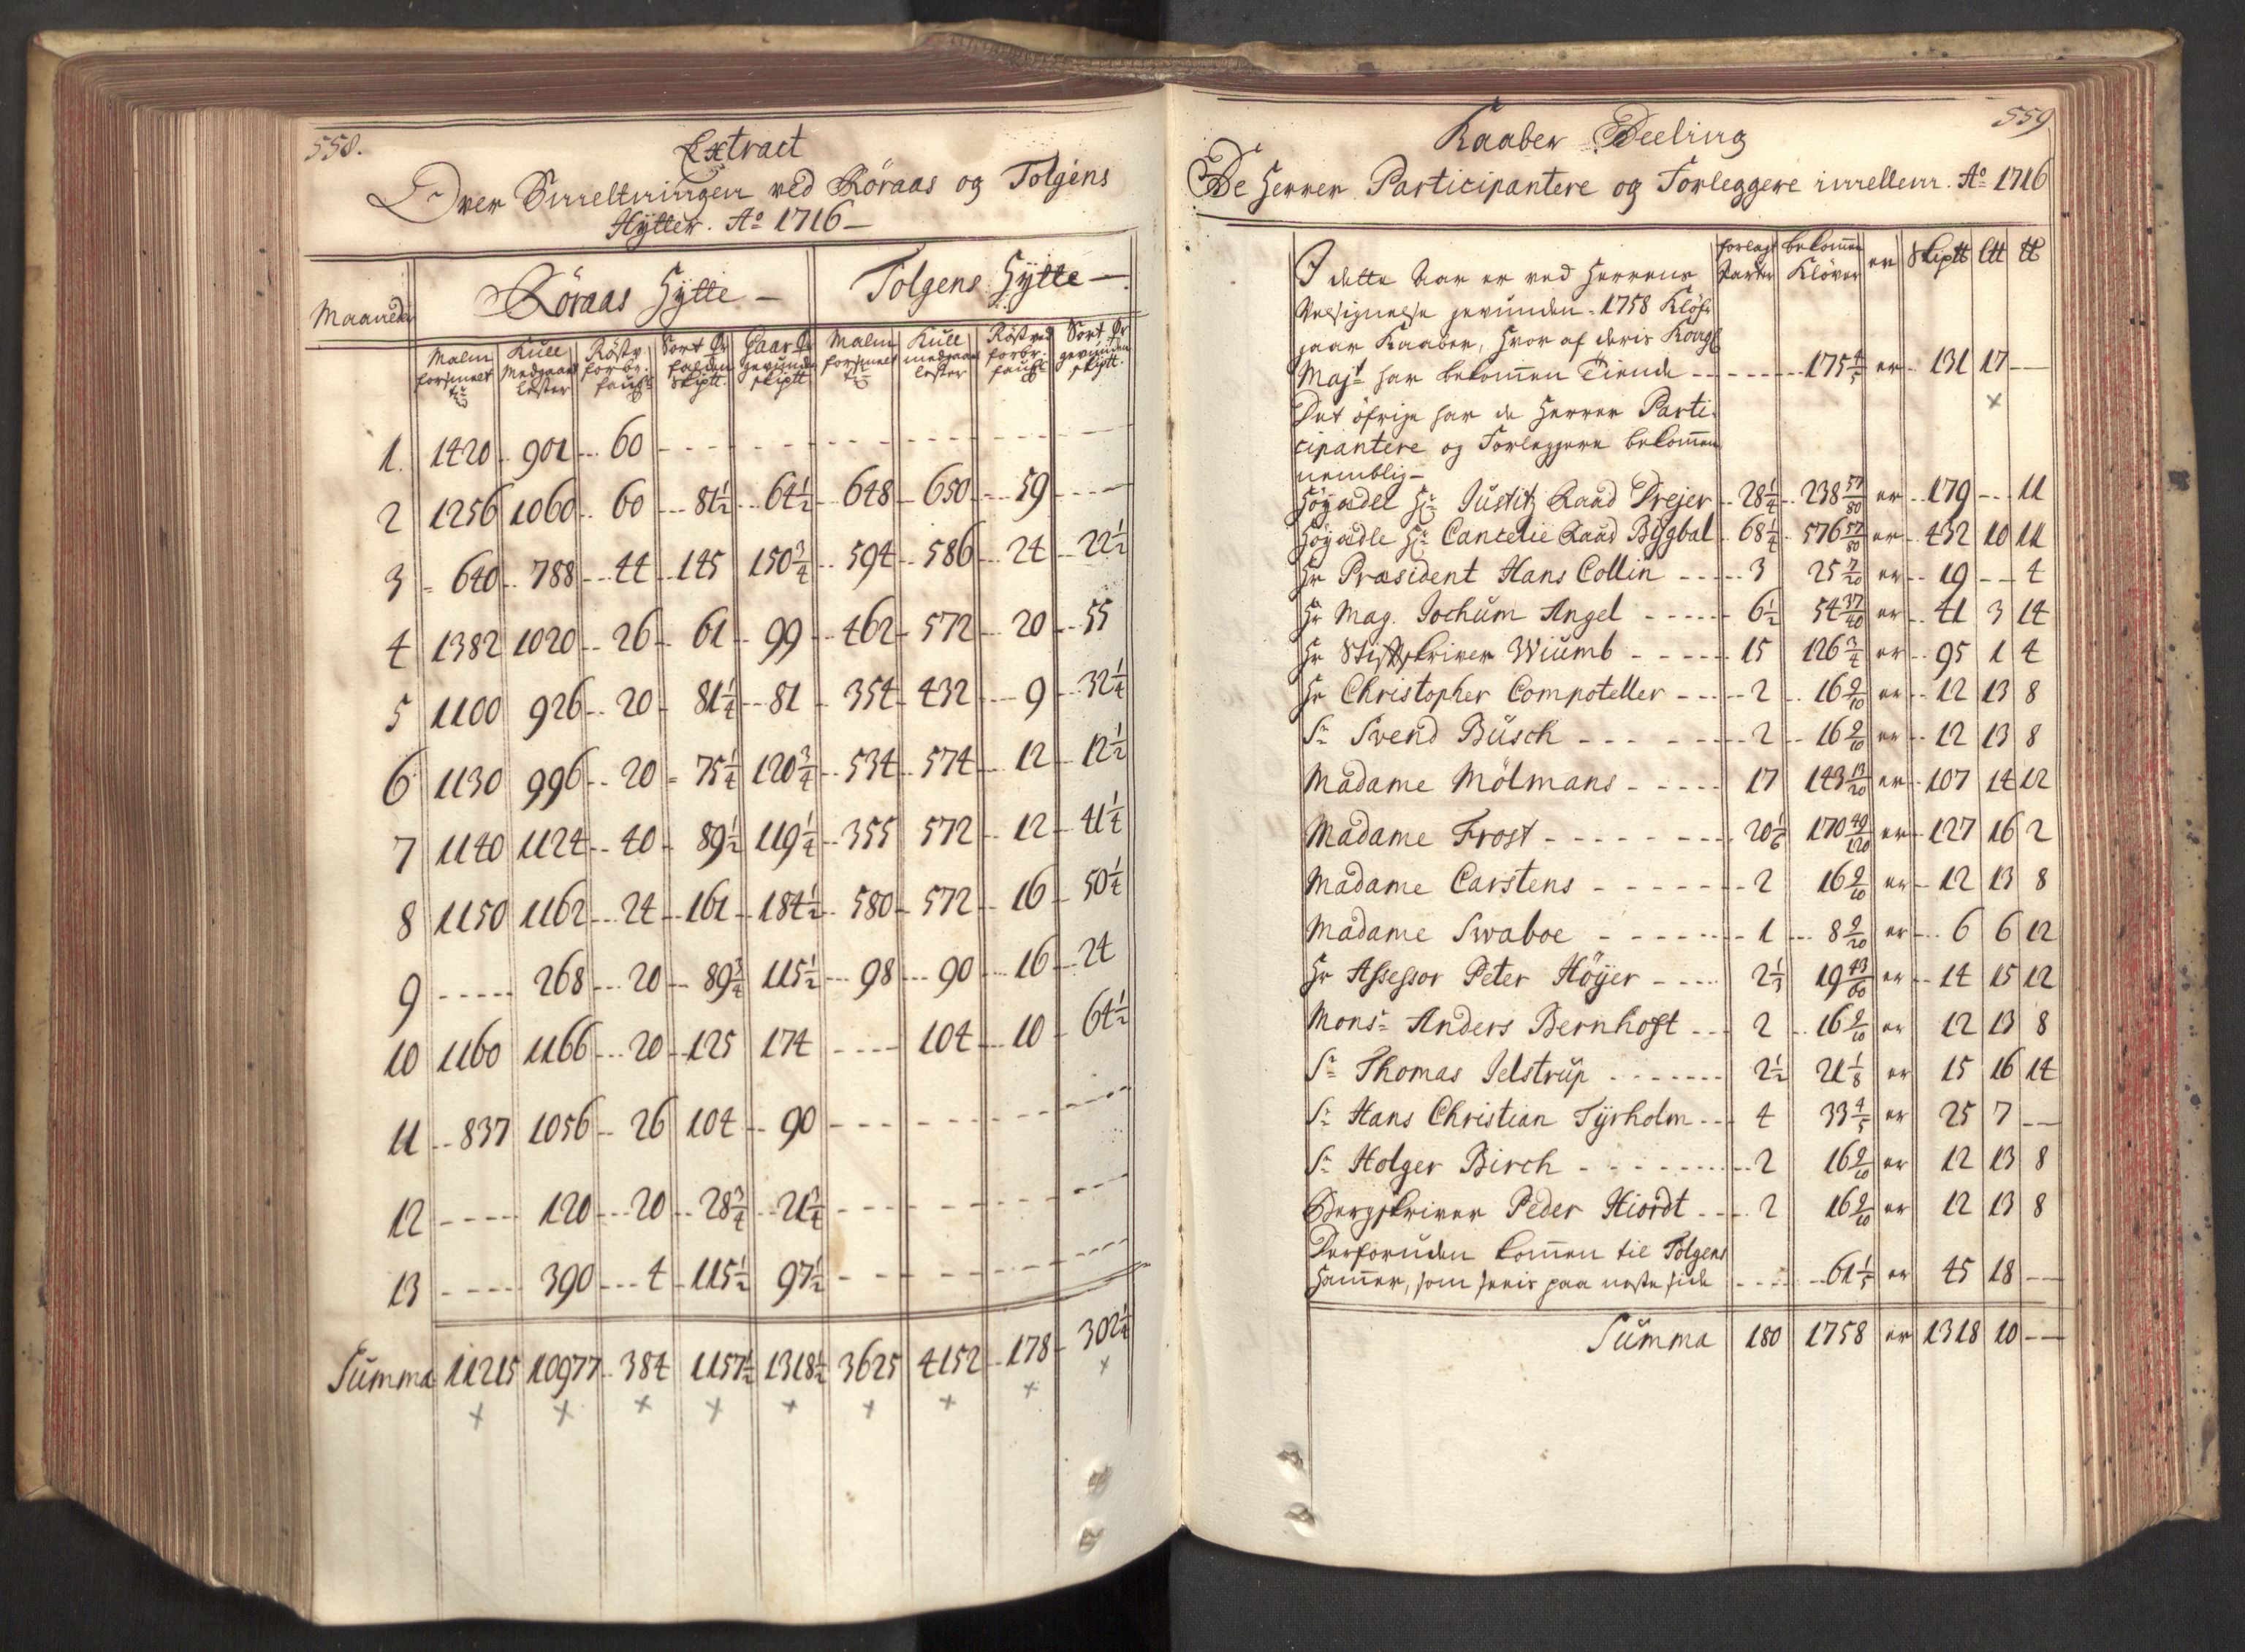 558.
Extract
Over Smeltningen ved Röraas og Tolgens
Hÿtter. Aô 1716 —
Maaneder
Röraas Hÿtte —
Tolgens Hÿtte —
Malm forsmelt | Kull medgaaet Lester | Röstv. forbr. faufn | Sort Kr falden Skiptt. | Gaar Kr gevunden skiptt | Malm forsmelt | Kull medgaaet lester | Röstved forbr. faufn | Sort Kr gevunden skiptt.
1. 1420 901 60
2 1256 1060 60 81½ 64½ 648 650 59
3 640 788 44 145 150¾ 594 586 24 22½
4 1382 1020 26 61 99 462 572 20 55
5 1100 926 20 81¼ 81 354 432 9 32¼
6 1130 996 20 75¼ 120¾ 534 574 12 12½
7 1140 1124 40 89½ 119¼ 355 572 12 41¼
8 1150 1162 24 161 184½ 580 572 16 50¼
9 268 20 89¾ 115½ 98 90 16 24
10 1160 1166 20 125 174 104 10 64½
11 837 1056 26 104 90
12 120 20 28¾ 21¾
13 390 4 115½ 97½
Summa 11215 10977 384 1157½ 1318½ 3625 4152 178 302¼
559
Kaaber Deeling
De Herrer Participantere og Forleggere imellem. Aô 1716
forlags Parter | bekomen Klöver | er | Skiptt | Ltt | tt
I dette Aar er ved Herrens
Velsignelse gevunden. 1758 Klöfr
gaar Kaaber, hvor af deris Kongl
Mayt har bekomen Tiende 175 4/5 er 131 17 —
Det öfrige har de Herrer Parti-
cipantere og Forleggere bekomen
nemblig —
Höyædel Hr Justitz Raad Drejer 28¼ 238 57/80 er 179 11
Höyædle Hr Cancelie Raad Bÿgbal 68¼ 576 57/80 er 432 10 11
Hr Præsident Hans Collin 3 25 7/20 er 19 — 4
Hr Mag. Jochum Angel 6½ 54 37/40 er 41 3 14
Hr Stiftskriver Wiumb 15 126¾ er 95 1 4
Hr Christopher Compoteller 2 16 9/10 er 12 13 8
Sr Svend Busch 2 16 9/10 er 12 13 8
Madame Mölmans 17 143 13/20 er 107 14 12
Madame Frost 20 1/6 170 49/120 er 127 16 2
Madame Carstens 2 16 9/10 er 12 13 8
Madame Swaboe 1 8 9/20 er 6 6 12
Hr Assessor Peter Höÿer 2 1/3 19 43/60 er 14 15 12
Monsr Anders Bernhoft 2 16 9/10 er 12 13 8
Sr Thomas Jelstrup 2½ 21 1/8 er 15 16 14
Sr Hans Christian Tÿrholm 4 33 4/5 er 25 7 —
Sr Holger Birch 2 16 9/10 er 12 13 8
Bergskriver Peder Hiordt 2 16 9/10 er 12 13 8
Derforuden komen til Tolgens
Hamer, som sees paa neste side 61 1/5 er 45 18 —
Summa 180 1758 er 1318 10 —